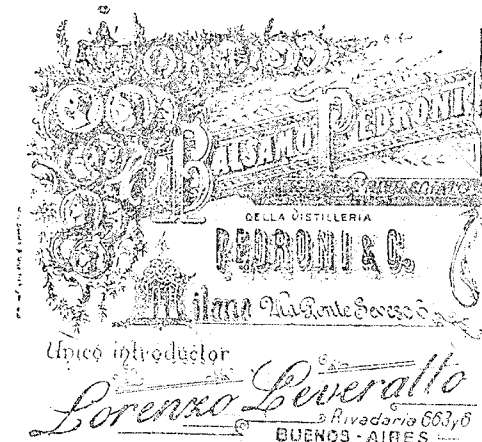 BALSAMO PEDRONI
DELLA DISTILLERIA
PEDRONI & C.
Milano Via Ponte Seveso 6
Unico introductor
Lorenzo Leverallo
Rivadaria 663 y 6
BUENOS-AIRES